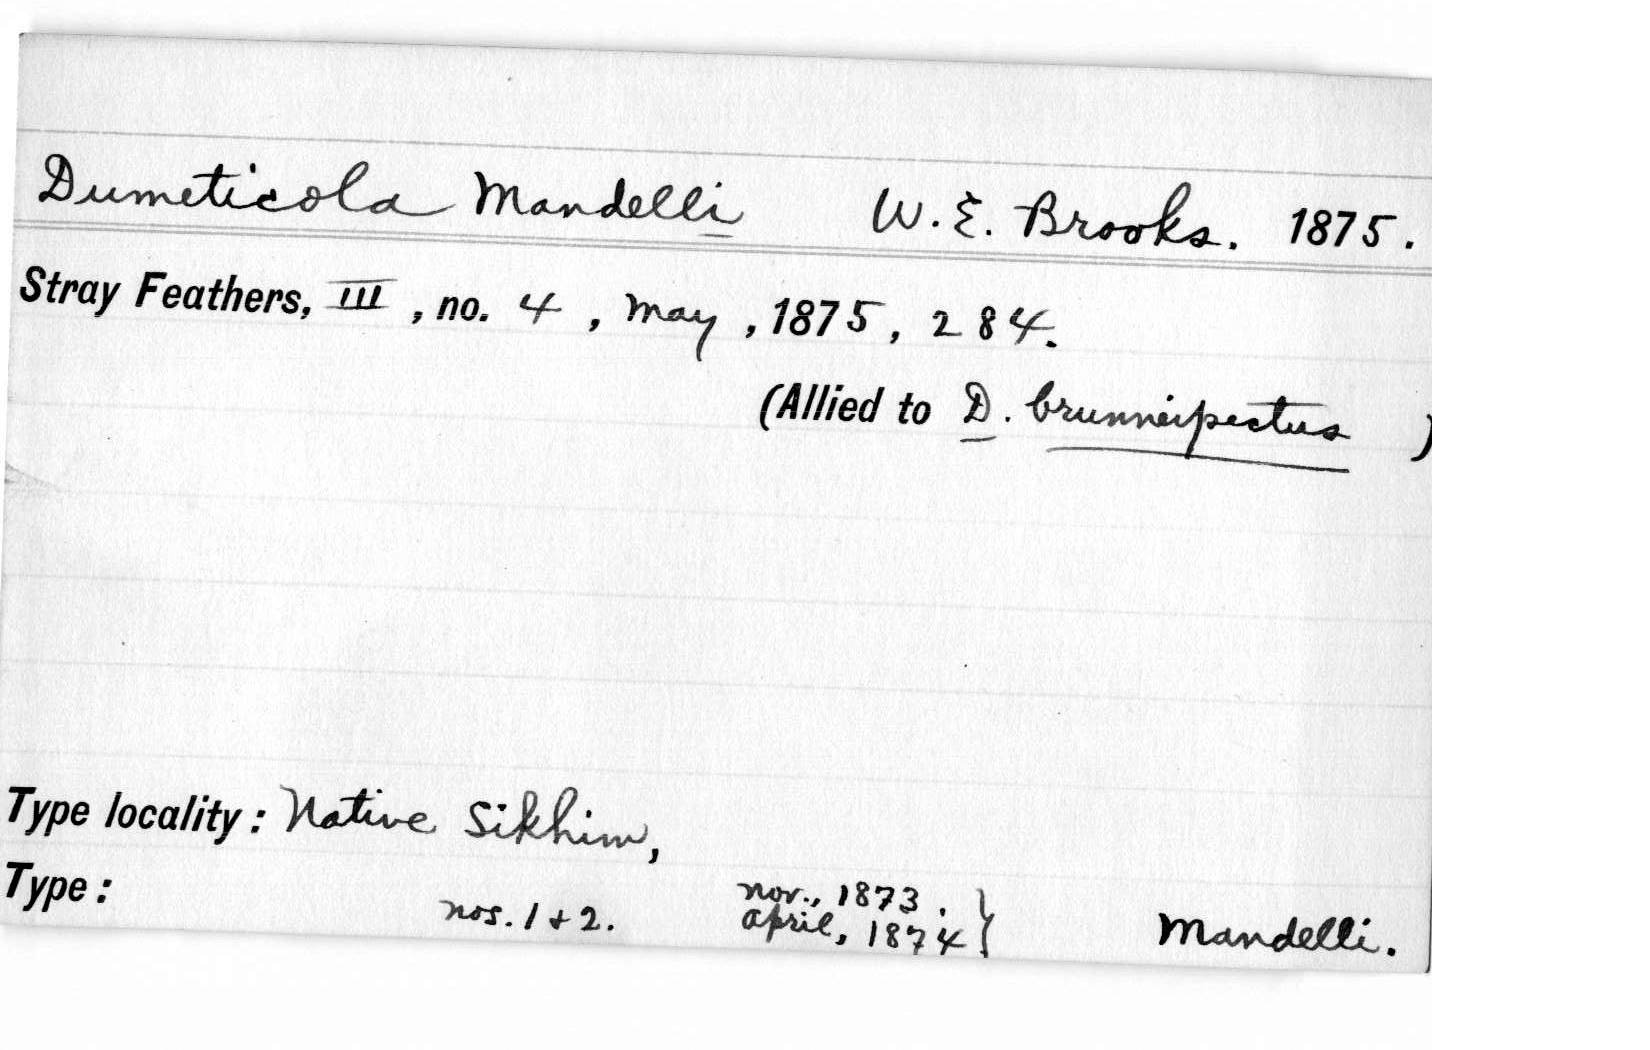 Dumeticola Mandelli W. E. Brooks. 1875.
Stray Feathers, III, no. 4, May, 1875, 284.
(Allied to D. brunneipectus )
Type locality: Native Sikhim,
Type: nos. 1 + 2. nov., 1873. april, 1874 } Mandelli.